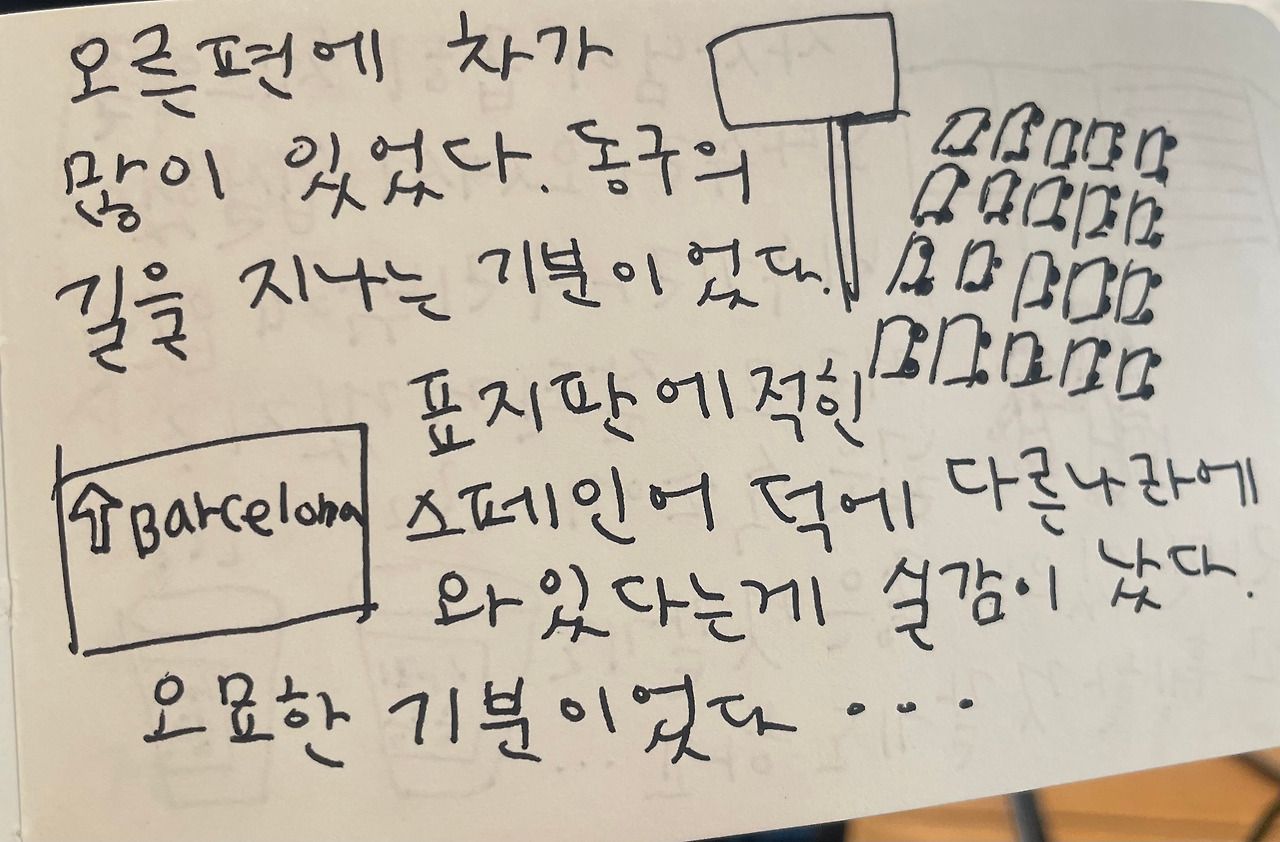 오른편에 차가
많이 있었다. 동구의
길을 지나는 기분이었다.
표지판에 적힌
⇧ Barcelona
스페인어 덕에 다른나라에
와있다는게 실감이 났다.
오묘한 기분이었다 ...